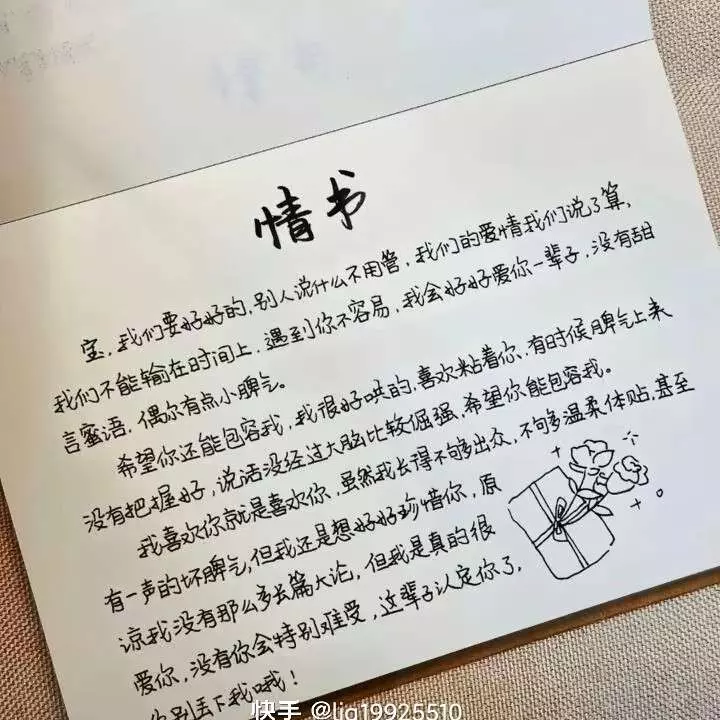 情书
宝，我们要好好的，别人说什么不用管，我们的爱情我们说了算，
我们不能输在时间上，遇到你不容易，我会好好爱你一辈子，没有甜
言蜜语，偶尔有点小脾气。
希望你还能包容我，我很好哄的，喜欢粘着你，有时候脾气上来
没有把握好，说话没经过大脑比较倔强，希望你能包容我。
我喜欢你就是喜欢你，虽然我长得不够出众，不够多温柔体贴，甚至
有一声的坏脾气，但我还是想好好珍惜你，原
谅我没有那么多长篇大论，但我是真的很
爱你，没有你会特别难受，这辈子认定你了，
你别丢下我哦！
快手 @liq19925510